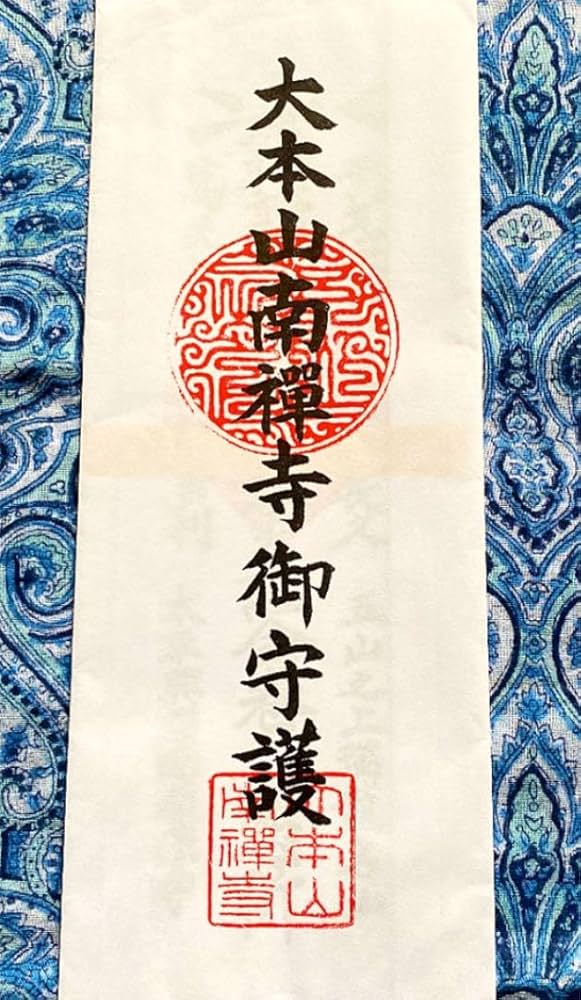 大本山南禪寺御守護
大本山
南禪寺